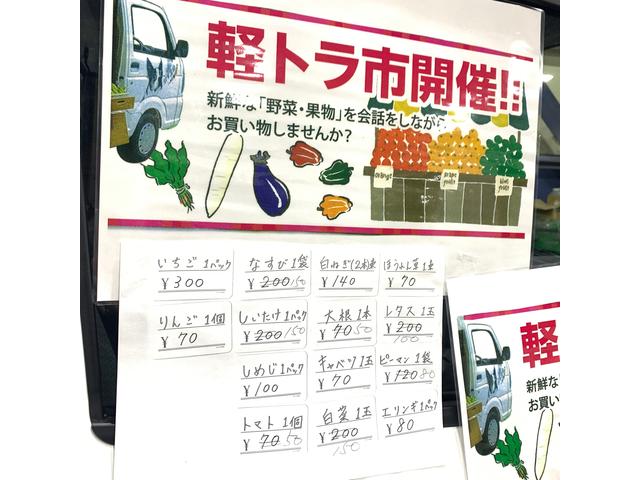 軽トラ市開催!!
新鮮な「野菜・果物」を会話をしながら
お買い物しませんか?
orange
grape fruits
kiwi fruits
いちご 1パック
¥300
なすび 1袋
¥200 150
白ねぎ(2本)束
¥140
ほうれん草 1束
¥70
りんご 1個
¥70
しいたけ 1パック
¥200 150
大根 1本
¥70 50
レタス 1玉
¥200
100
しめじ 1パック
¥100
キャベツ 1玉
¥70
ピーマン 1袋
¥120 80
トマト 1個
¥70 50
白菜 1玉
¥200
150
エリンギ 1パック
¥80
軽
新鮮な
お買い